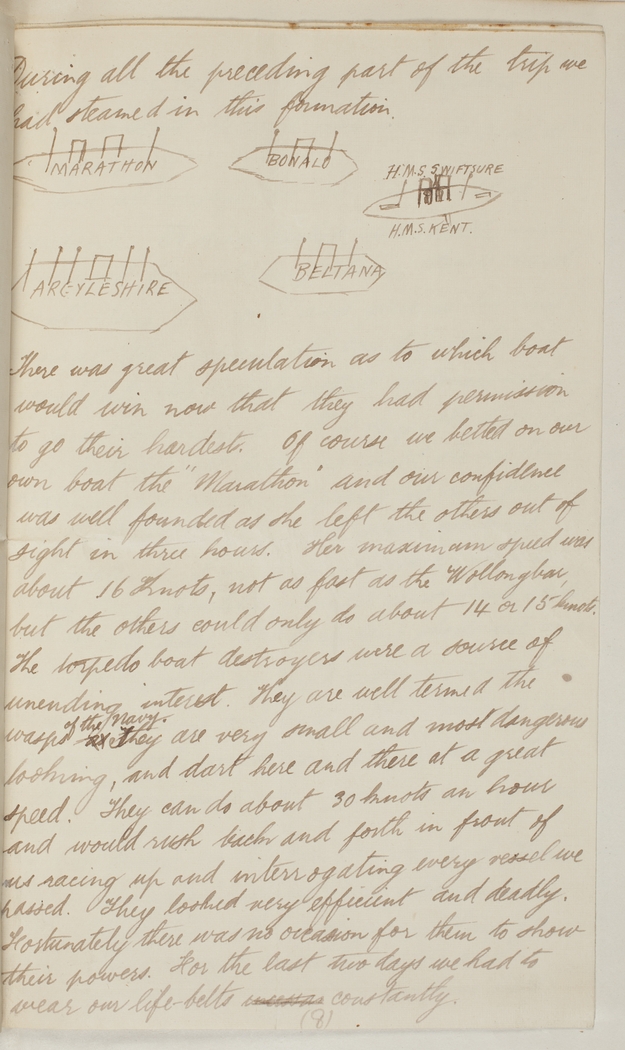 During all the preceding part of the trip we
had steamed in this formation.
MARATHON
BONALO
H.M.S. SWIFTSURE
H.M.S. KENT.
ARGYLESHIRE
BELTANA
There was great speculation as to which boat
would win now that they had permission
to go their hardest. Of course we betted on our
own boat the "Marathon" and our confidence
was well founded as she left the others out of
sight in three hours. Her maximum speed was
about 16 Knots, not as fast as the Wollongbar,
but the others could only do about 14 or 15 knots.
The torpedo boat destroyers were a source of
unending interest. They are well termed the
wasps of the Navy. They are very small and most dangerous
looking, and dart here and there at a great
speed. They can do about 30 knots an hour
and would rush back and forth in front of
us racing up and interrogating every vessel we
passed. They looked very efficient and deadly.
Fortunately there was no occasion for them to show
their powers. For the last two days we had to
wear our life-belts constantly.
(8)